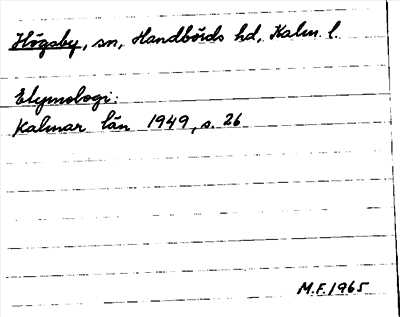 Högsby, sn, Handbörds hd, Kalm. l.
Etymologi:
Kalmar län 1949, s. 26
M.F. 1965